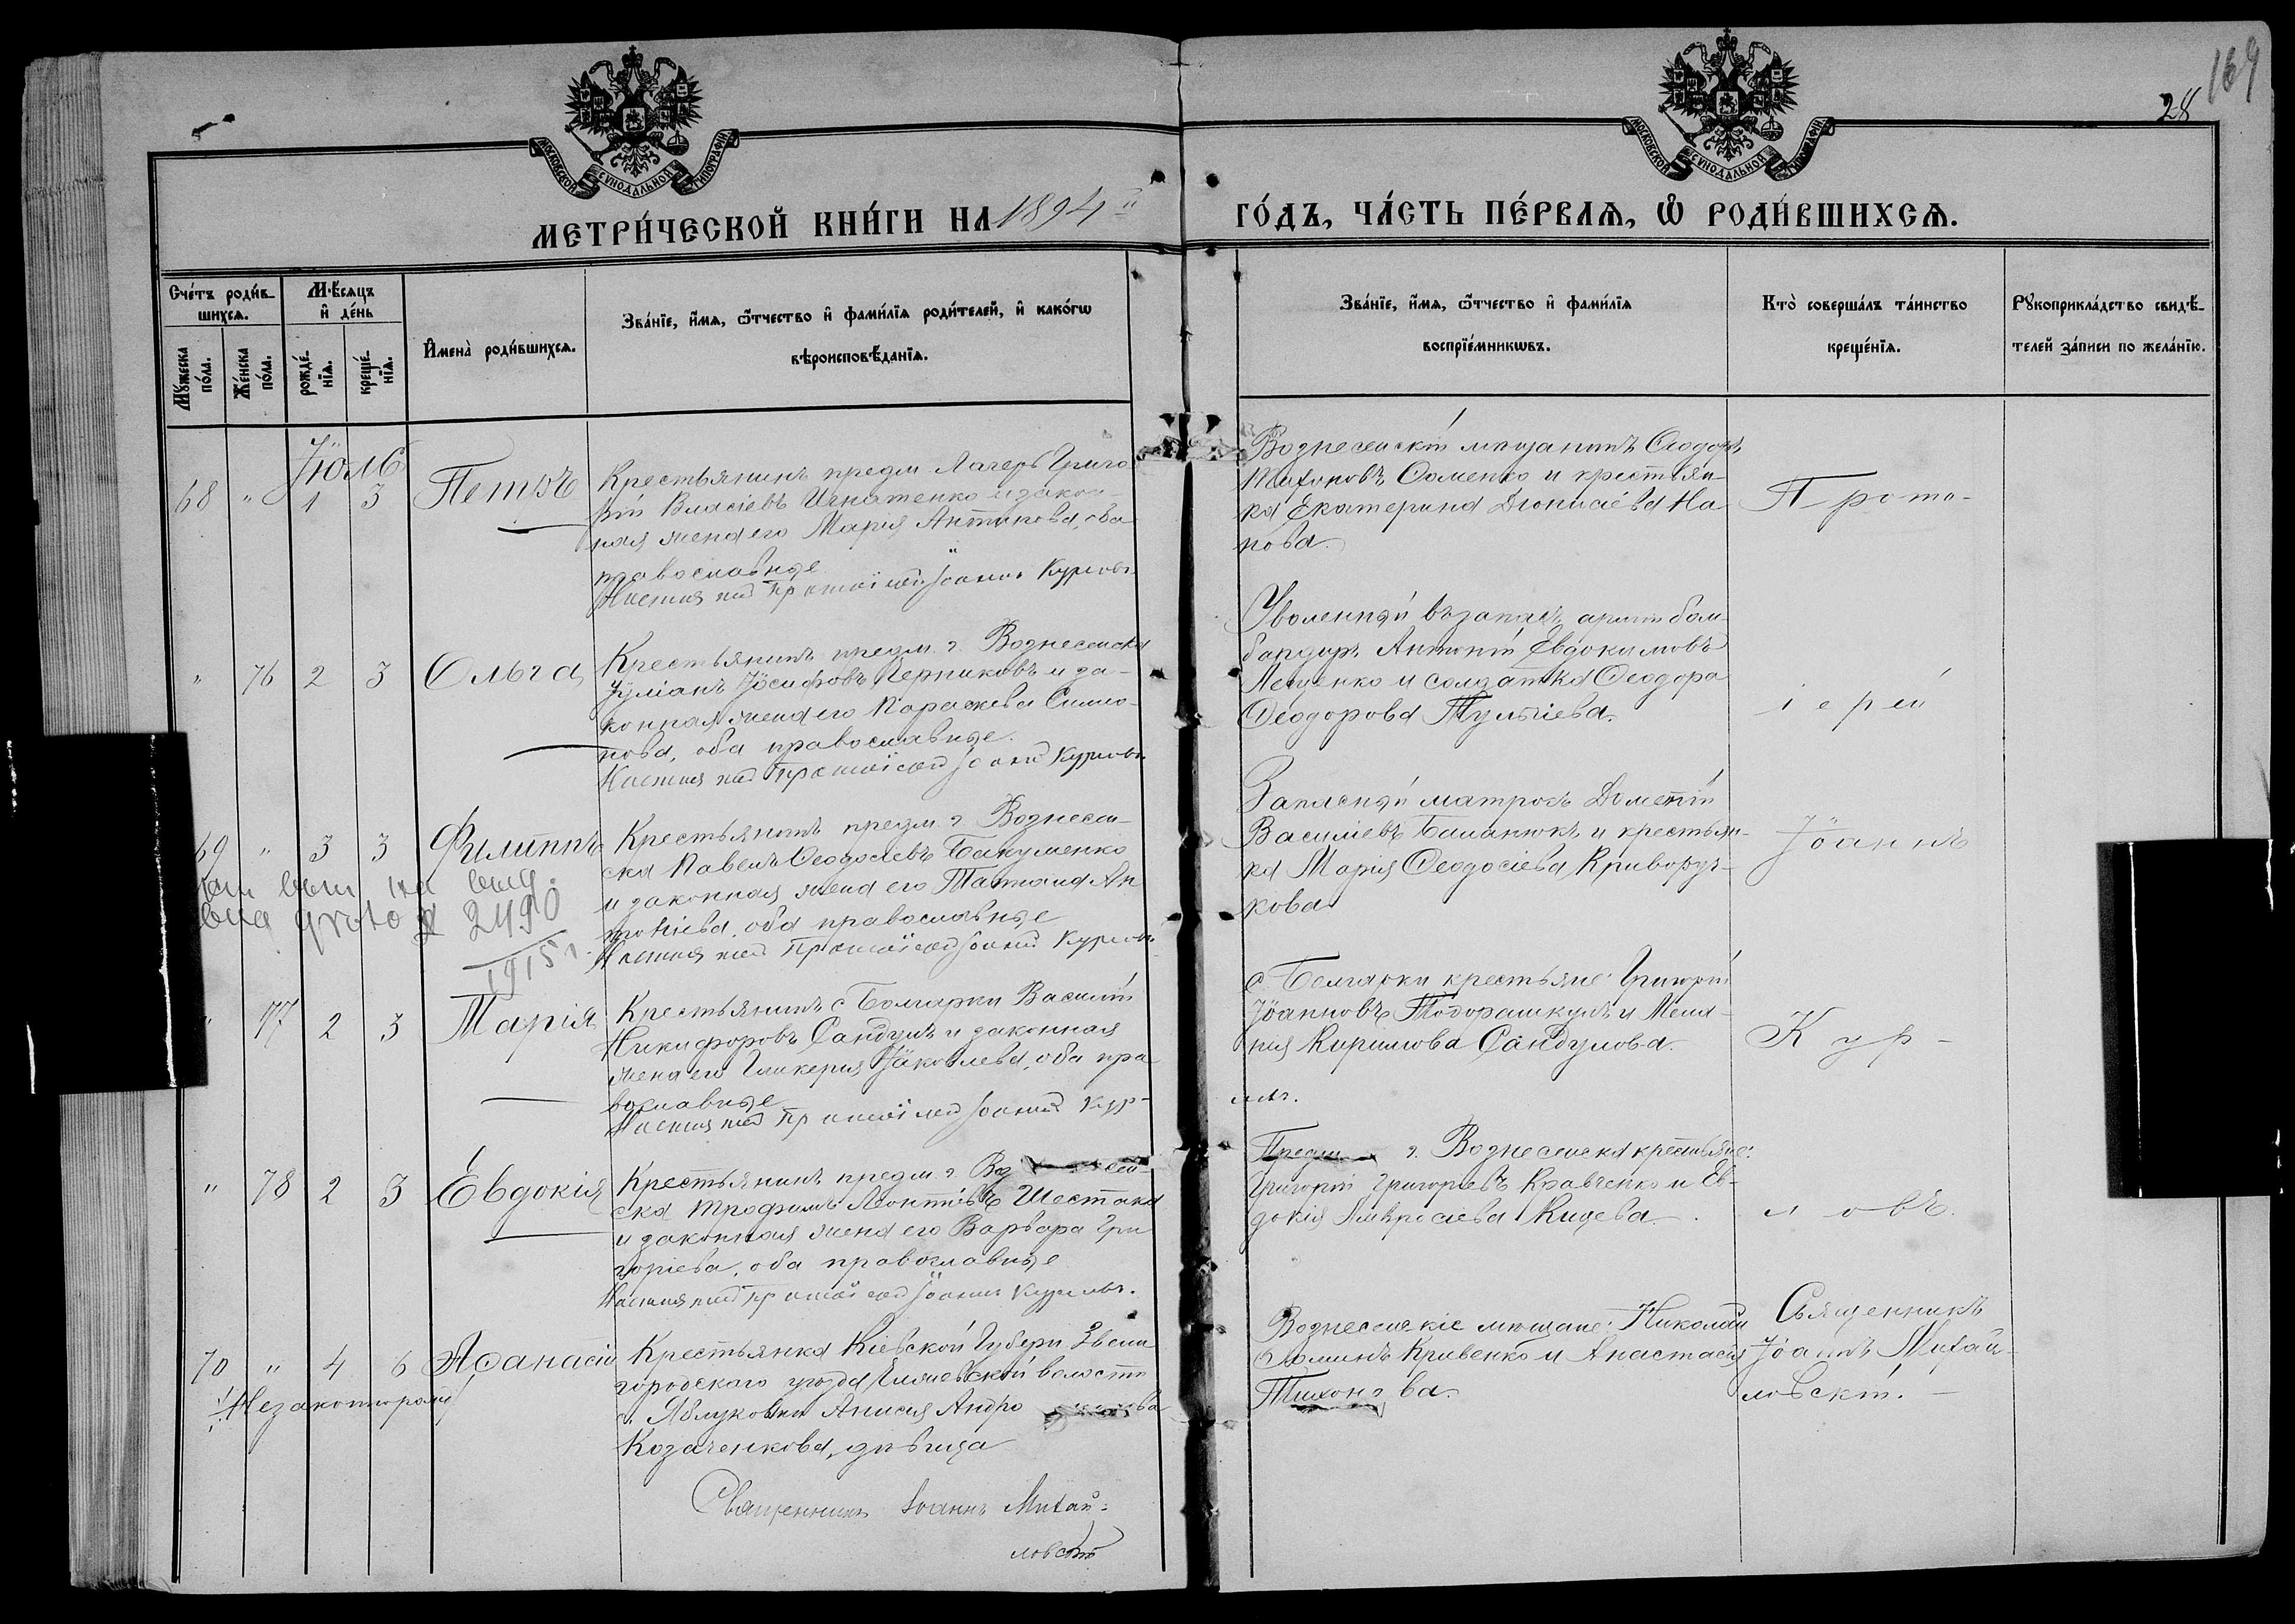 169
28
МОСКОВСКОЙ СѴНОДАЛЬНОЙ ТИПОГРАФІИ
МОСКОВСКОЙ СѴНОДАЛЬНОЙ ТИПОГРАФІИ
МЕТРИ́ЧЕСКОЙ КНИ́ГИ НА 1894 й ГО́ДЪ, ЧА́СТЬ ПЕ́РВАѦ, Ѡ РОДИ́ВШИХСѦ.
Сче́тъ роди́в-
шихсѧ.
Мꙋ́жеска по́ла.
Же́нска по́ла.
Мѣ́сяцъ и҆ де́нь
рожде́-
нїѧ.
креще́-
нїѧ.
И҆мена̀ роди́вшихсѧ.
Зва́нїе, и҆́мѧ, ѻ҆́тчество и҆ фами́лїѧ роди́телей, и҆ како́гѡ
вѣроисповѣ́данїѧ.
Зва́нїе, и҆́мѧ, ѻ҆́тчество и҆ фами́лїѧ
воспрїе́мникѡвъ.
Кто̀ соверша́лъ та́инство
креще́нїѧ.
Рꙋкоприкла́дство свидѣ́-
телей за́писи по жела́нїю.
Іюль
68 " 1 3 Петръ
Крестьянинъ предм Лагерь Григо
рій Власіевъ Игнатенко и закон-
ная жена его Марія Антипова, оба
православные
Протоіерей Іоаннъ Курловъ
Вознесенскій мѣщанинъ Ѳеодоръ
Тихоновъ Ѳоменко и крестьян-
ка Екатерина Діонисіева На
пова.
Прото-
" 76 2 3 Ольга
Крестьянинъ предм. г. Вознесенска
Іуліанъ Іосифовъ Черниковъ и за-
конная жена его Параскева Симо-
нова, оба православные.
Протоіерей Іоаннъ Курловъ
Уволенный въ запасъ армии бом-
бандиръ Антоній Евдокимовъ
Лещенко и солдатка Ѳеодора
Ѳеодорова Тульчіева.
іерей
69 " 3 3 Филиппъ
Крестьянинъ предм. г. Вознесен-
ска Павелъ Ѳеодосіевъ Бакуменко
и законная жена его Татіана Ан
тоніева, оба православные
Протоіерей Іоаннъ Курловъ
2490
1915 г.
Запасный матросъ Дометій
Василіевъ Баланюкъ и крестьян-
ка Марія Ѳеодосіева Криворуч-
кова
Іоаннъ
" 77 2 3 Марія
Крестьянинъ с Болгарки Василій
Никифоровъ Сандулъ и законная
жена его Гликерія Іаковлева, оба пра
вославные
Протоіерей Іоаннъ Кур-
ловъ.
с. Болгарки крестьяне: Григорій
Іоанновъ Тодорашкулъ и Мела-
нія Кирилова Сандулова.
Кур-
" 78 2 3 Евдокія
Крестьянинъ предм. г. Воз сен-
ска Трофимъ Леонтіевъ Шестака
и законная жена его Варвара Гри
горіева, оба православные
Протоіерей Іоаннъ Курловъ.
Предм. г. Вознесенска крестьяне:
Григорій Григоріевъ Кравченко и Ев-
докія Амвросіева Кицева.
ловъ.
70 " 4 6 Аѳанасій
Незаконнорожд
Крестьянка Кіевской Губерн Звени
городского уѣзда волости
с. Яблуковки Анисія Андро ва
Козаченкова, дѣвица
Священникъ Іоаннъ Михай-
ловскій
Вознесенскіе мѣщане: Николай
Ѳоминъ Кривенко и Анастасія
Тихонова.
Священникъ
Іоаннъ Михай-
ловскій.